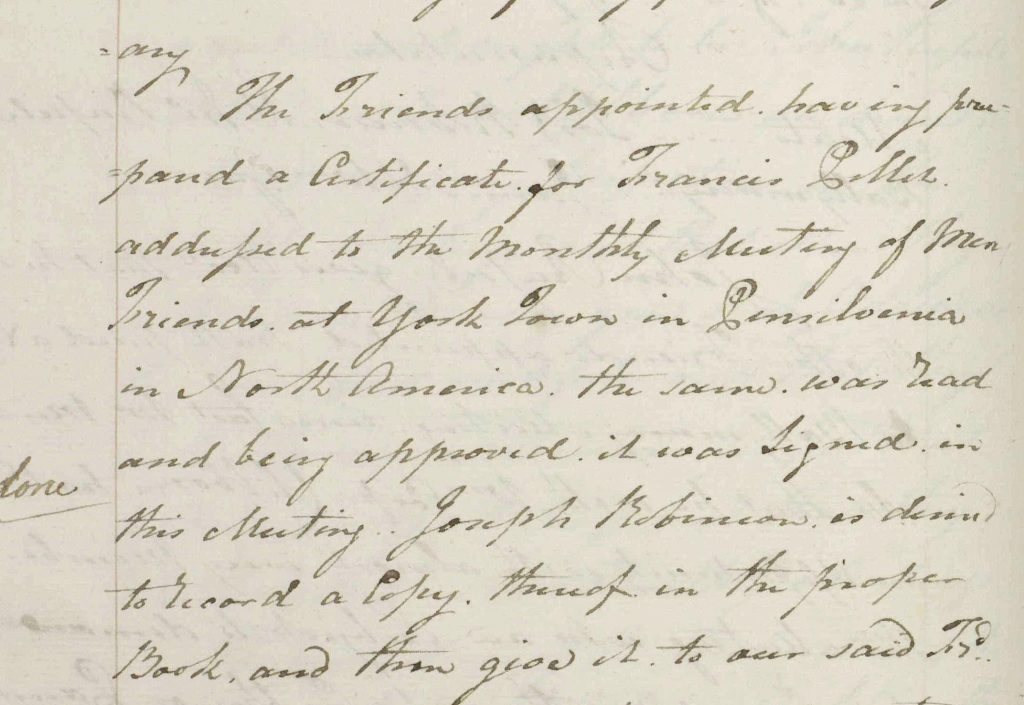 =any
The Friends appointed. having pre=
=pared a Certificate. for Francis Pellet.
addressed to the Monthly Meeting of Men
Friends. at York Town in Pensilvenia
in North America. the same. was read
and being approved. it was Signed. in
done
this Meeting. Joseph Robinson. is desired
to record a Copy. thereof. in the proper
Book, and then give it. to our said Frd.